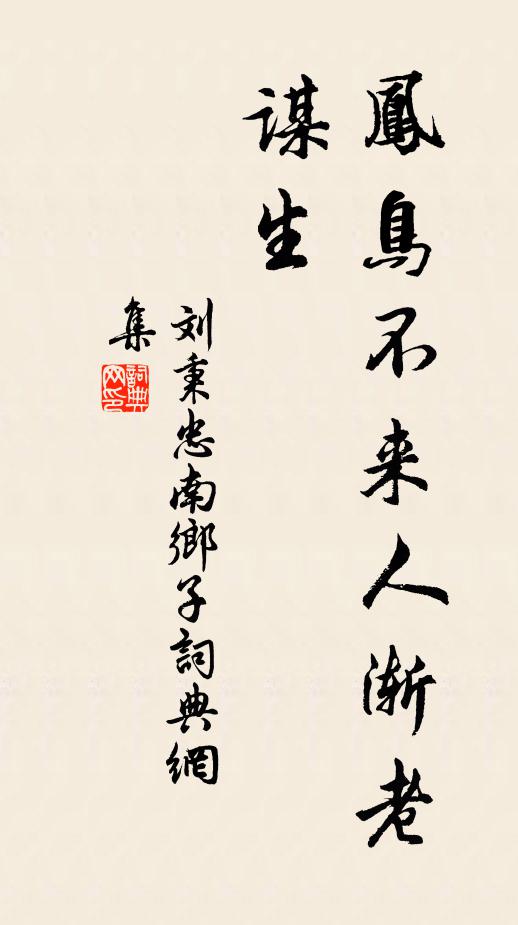 鳳鳥不来人漸老
謀生
刘秉忠南鄉子詞典網
集
詞典
网印